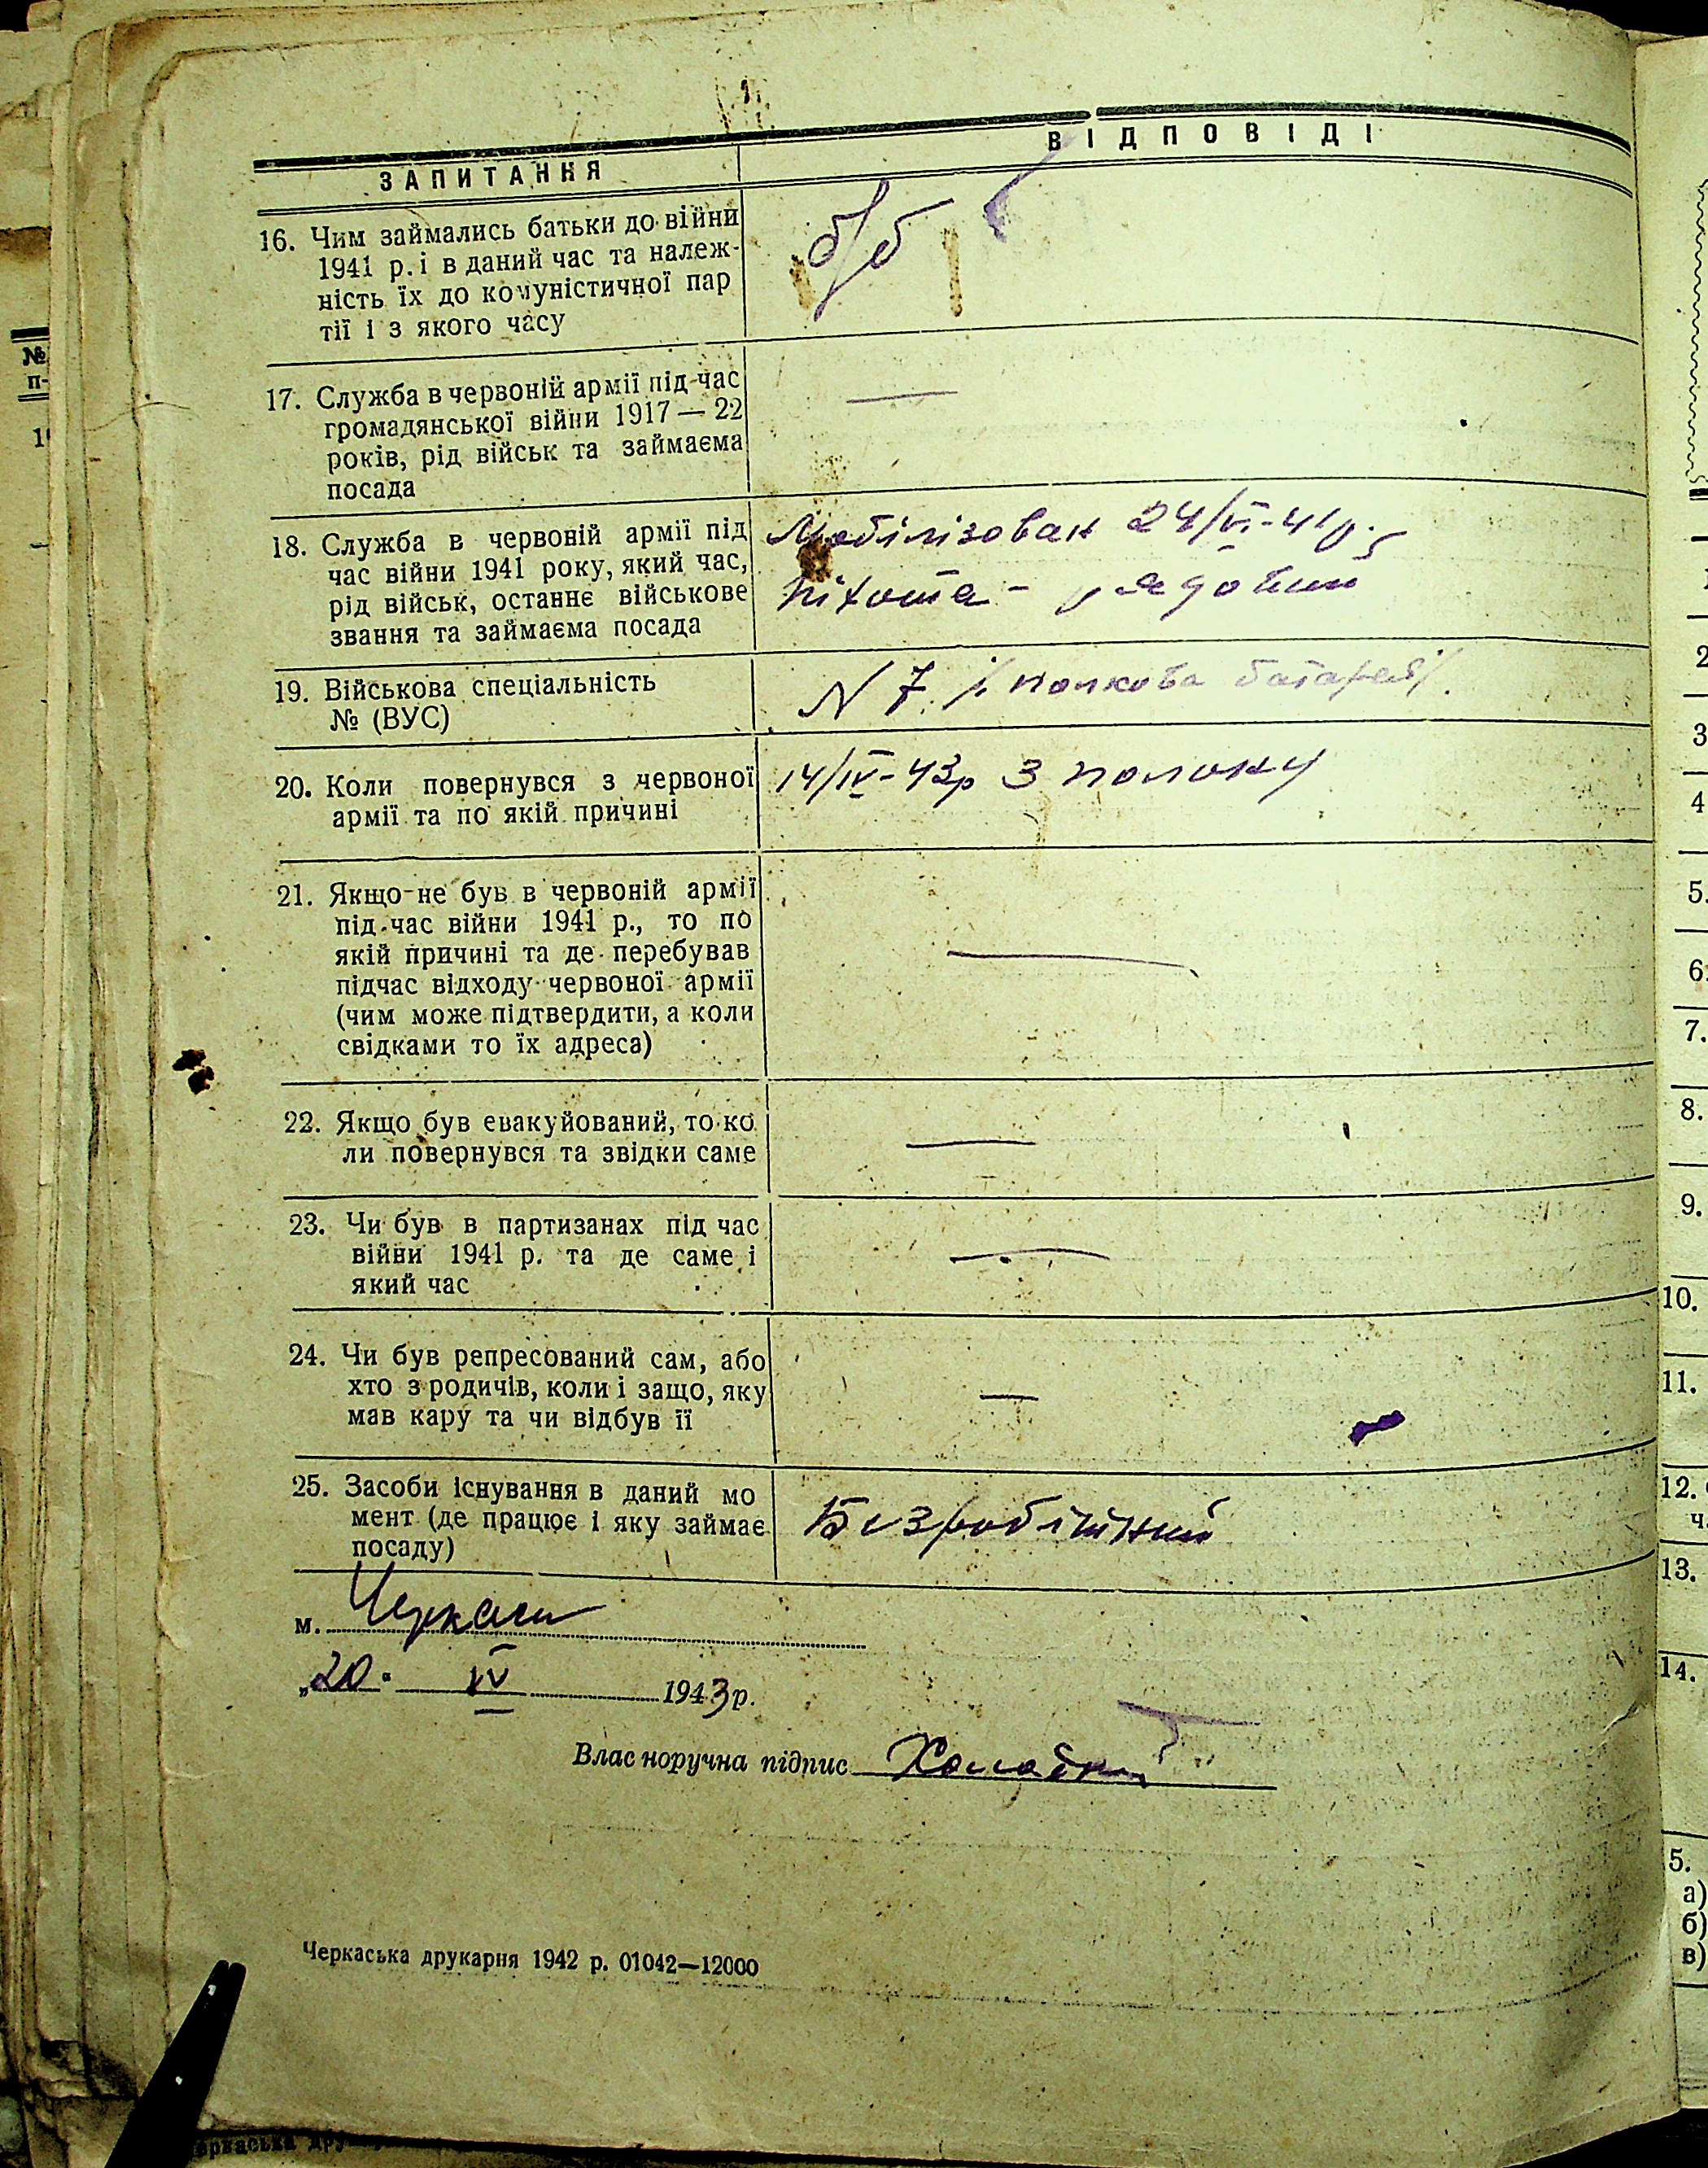 ЗАПИТАННЯ
ВІДПОВІДІ
16. Чим займались батьки до війни
1941 р. і в даний час та належ-
ність їх до комуністичної пар
тії і з якого часу
б/б
17. Служба в червоній армії під час
громадянської війни 1917 — 22
років, рід військ та займаєма
посада
—
18. Служба в червоній армії під
час війни 1941 року, який час,
рід військ, останнє військове
звання та займаєма посада
Мобілізован 24/VI-41р.
піхота - рядовий
19. Військова спеціальність
№ (ВУС)
N 7. /полкова батарей/.
20. Коли повернувся з червоної
армії та по якій причині
14/IV-43р З полону
21. Якщо не був в червоній армії
під час війни 1941 р., то по
якій причині та де перебував
підчас відходу червоної армії
(чим може підтвердити, а коли
свідками то їх адреса)
—
22. Якщо був евакуйований, то ко
ли повернувся та звідки саме
—
23. Чи був в партизанах під час
війни 1941 р. та де саме і
який час
—
24. Чи був репресований сам, або
хто з родичів, коли і защо, яку
мав кару та чи відбув її
—
25. Засоби існування в даний мо
мент (де працює і яку займає
посаду)
Безробітний
м. Черкаси
„20" IV 1943 р.
Власноручна підпис
Черкаська друкарня 1942 р. 01042—12000
№
п-
2
3
4
5.
6.
7.
8.
9.
10.
11.
12.
ч.
13.
14.
5.
а)
б)
в)